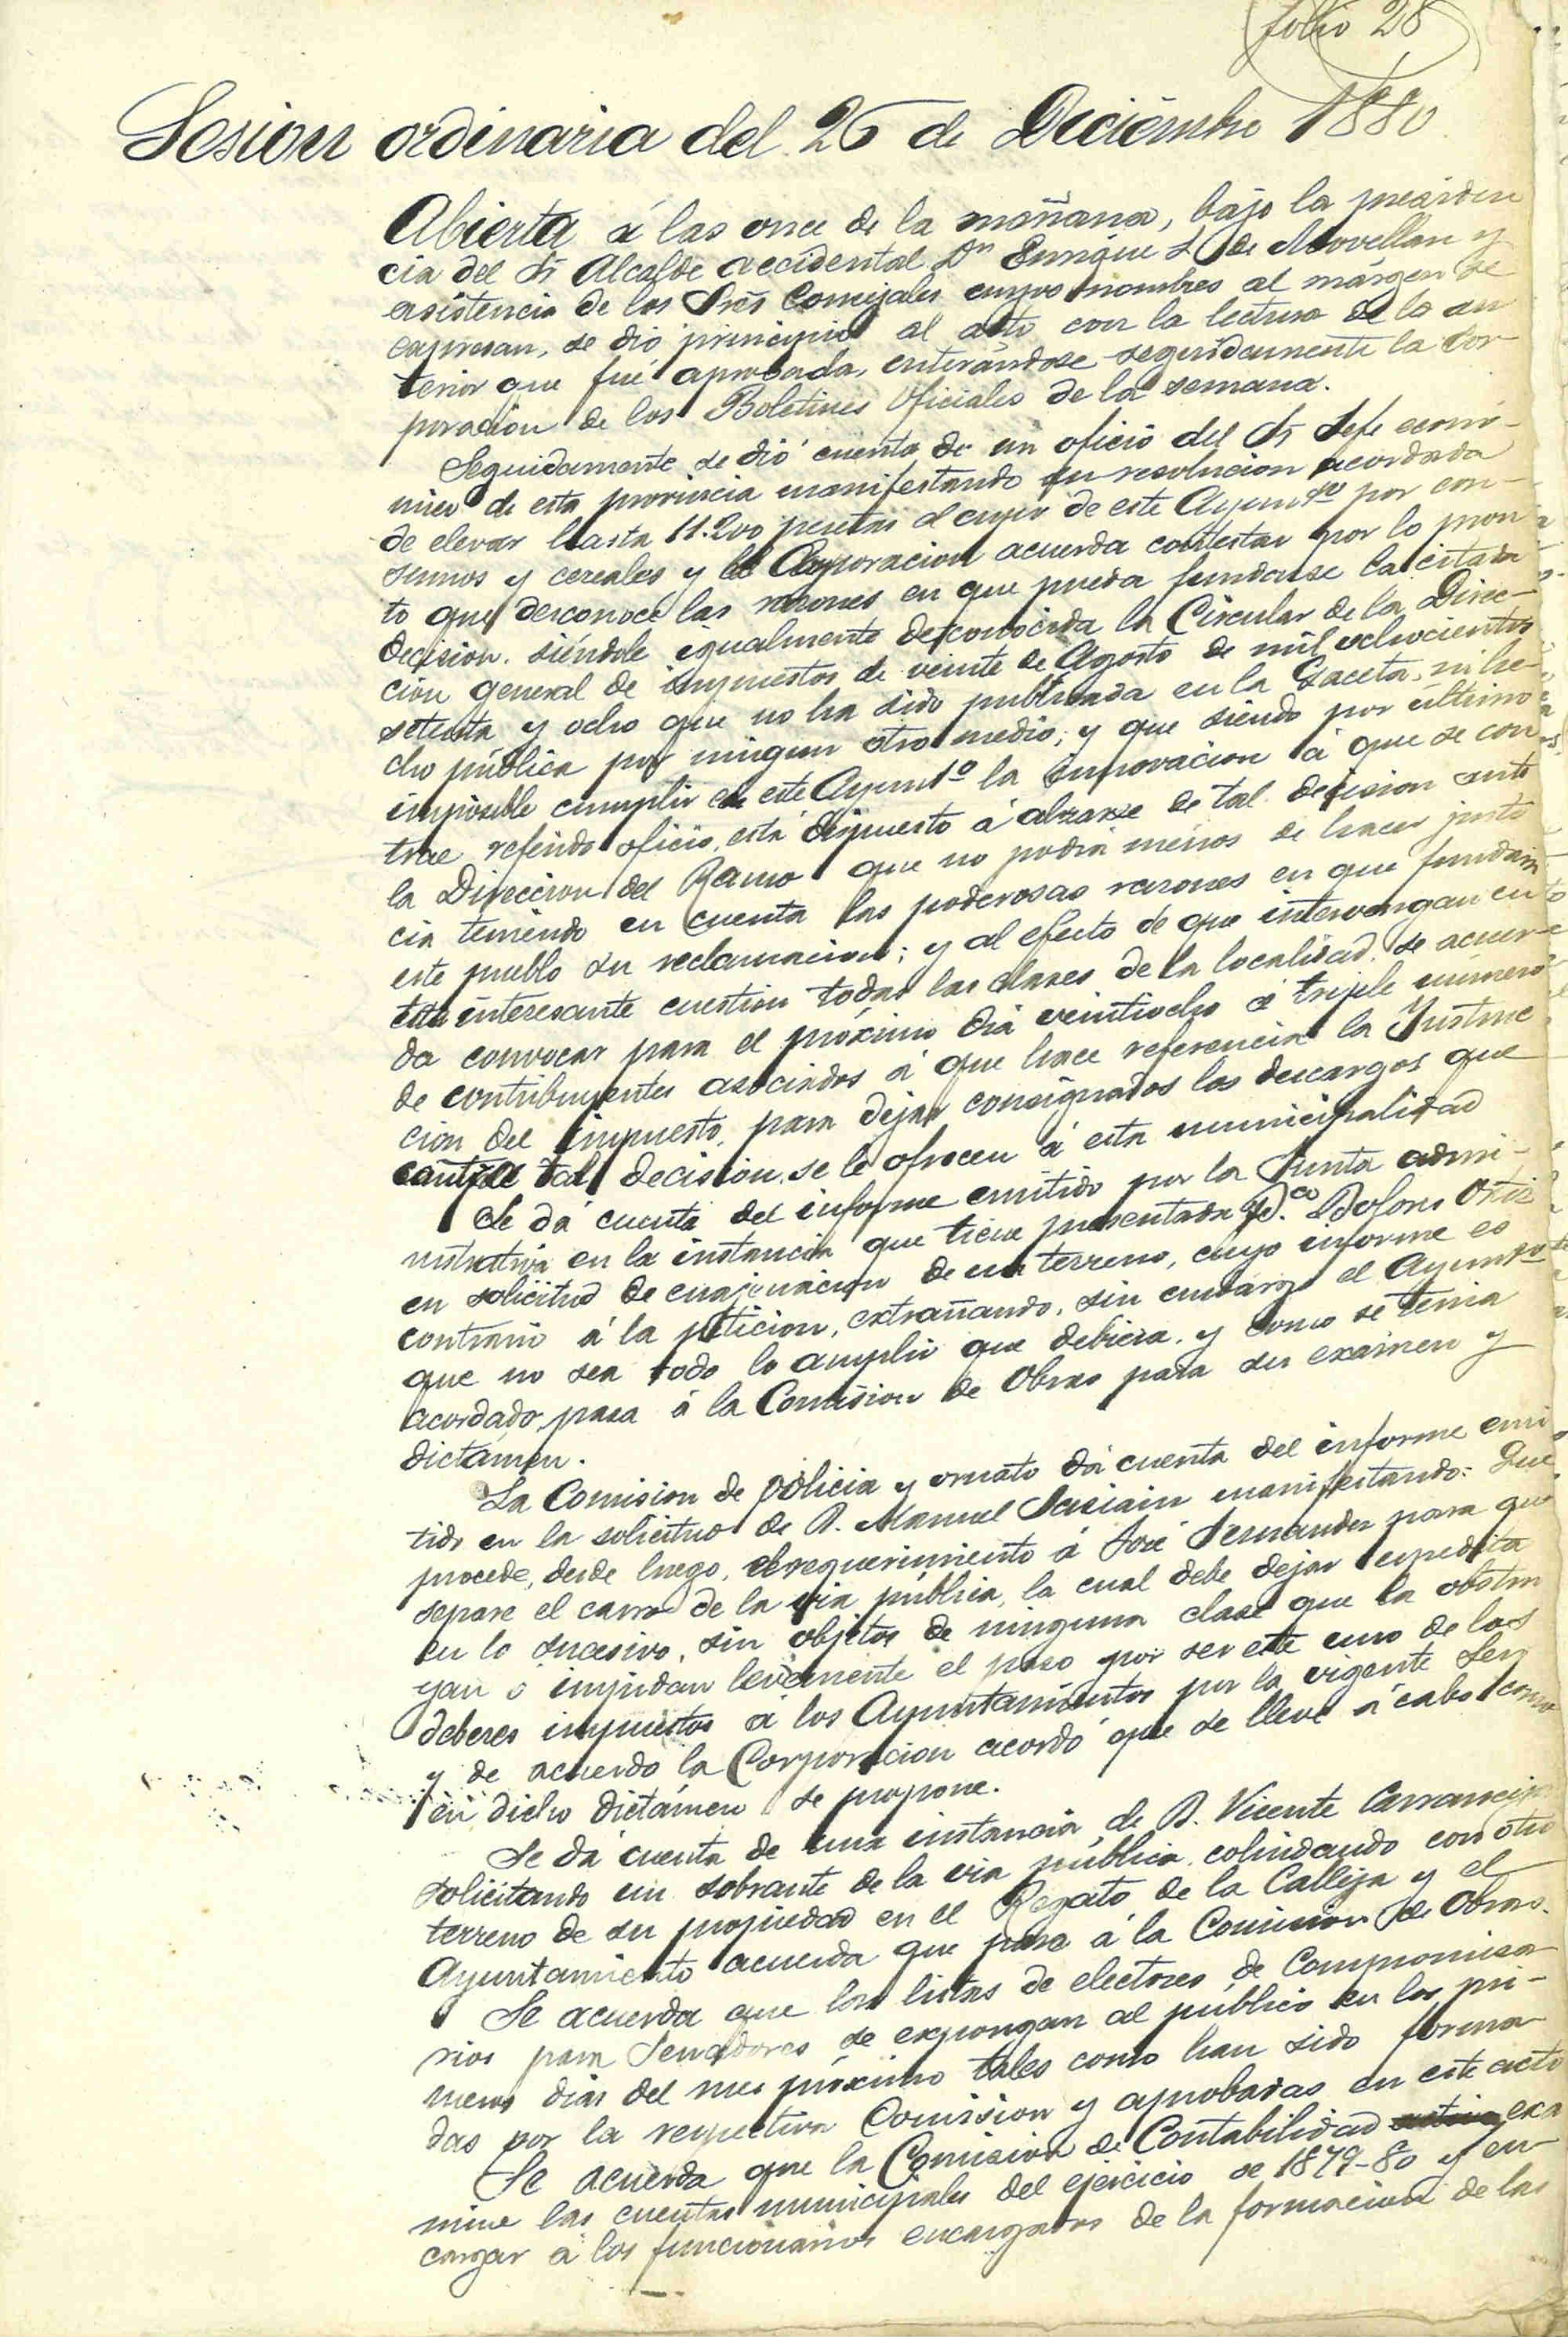 folio 28
Sesion ordinaria del 26 de Diciémbre 1880
Abierta á las once de la mañana, bajo la presiden
cia del Sr Alcalde accidental Dn Enrique L. de Movellan y
asistencia de los Sres Concejales cuyos nombres al márgen se
expresan, se dió principio al acto con la lectura de la an
terior que fué aprobada, enterándose seguidamente la Cor-
poracion de los Boletines Oficiales de la semana.
Seguidamente se dió cuenta de un oficio del Sr Jefe econó-
mico de esta provincia manifestando su resolucion acordada
de elevar hasta 11.200 pesetas el cupo de este Ayunto por con-
sumos y cereales y la Corporacion acuerda contestar por lo pron
to que desconoce las razones en que pueda fundarse la citada
decision. siéndole igualmente desconocida la Circular de la Direc-
cion general de impuestos de veinte de Agosto de mil ochocientos
setenta y ocho que no ha sido publicada en la Gaceta, ni he-
cho pública por ningun otro medio; y que siendo por último
imposible cumplir en este Ayunto la innovacion á que se con
trae referido oficio, está dispuesto á alzarse de tal decision ante
la Direccion del Ramo que no podrá ménos de hacer justi
cia teniendo en cuenta las poderosas razones en que fundará
este pueblo su reclamacion; y al efecto de que intervengan en
esta interesante cuestion todas las clases de la localidad. se acuer-
da convocar para el próximo dia veintiocho á triple número
de contribuyentes asociados á que hace referencia la Instruc
cion del impuesto, para dejar consignados los descargos que
contra tal decision se le ofrecen á esta municipalidad
Se dá cuenta del informe emitido por la Junta admi-
nistrativa en la instancia que tiene presentada Da. Dolores Ortiz
en solicitud de enajenacion de un terreno, cuyo informe es
contrario á la peticion, extrañando, sin embargo el Ayunto
que no sea todo lo amplio que debiera. y como se tenia
acordado, pasa á la Comision de Obras para su exámen y
dictámen.
La Comision de policia y ornato dá cuenta del informe emi
tido en la solicitud de D. Manuel Sasiain manifestando: Que
procede, desde luego, el requerimiento á José Fernandez para que
separe el carro de la via pública, la cual debe dejar expedita
en lo sucesivo, sin objetos de ninguna clase que la obstru
yan ó impidan levemente el paso por ser este uno de los
deberes impuestos á los Ayuntamientos por la vigente Ley
y de acuerdo la Corporacion acordó que se lleve á cabo como
en dicho dictámen se propone.
Se dá cuenta de una instancia de D. Vicente Carranceja
solicitando un sobrante de la via pública colindando con otro
terreno de su propiedad en el Regato de la Calleja y el
Ayuntamiento acuerda que pase á la Comision de Obras.
Se acuerda que las listas de electores de Compromisa-
rios para Senadores se expongan al público en los pri-
meros dias del mes próximo tales como han sido forma-
das por la respectiva Comision y aprobadas en este acto
Se acuerda que la Comision de Contabilidad exa
mine las cuentas municipales del ejercicio de 1879-80 y en-
cargar á los funcionarios encargados de la formacion de las